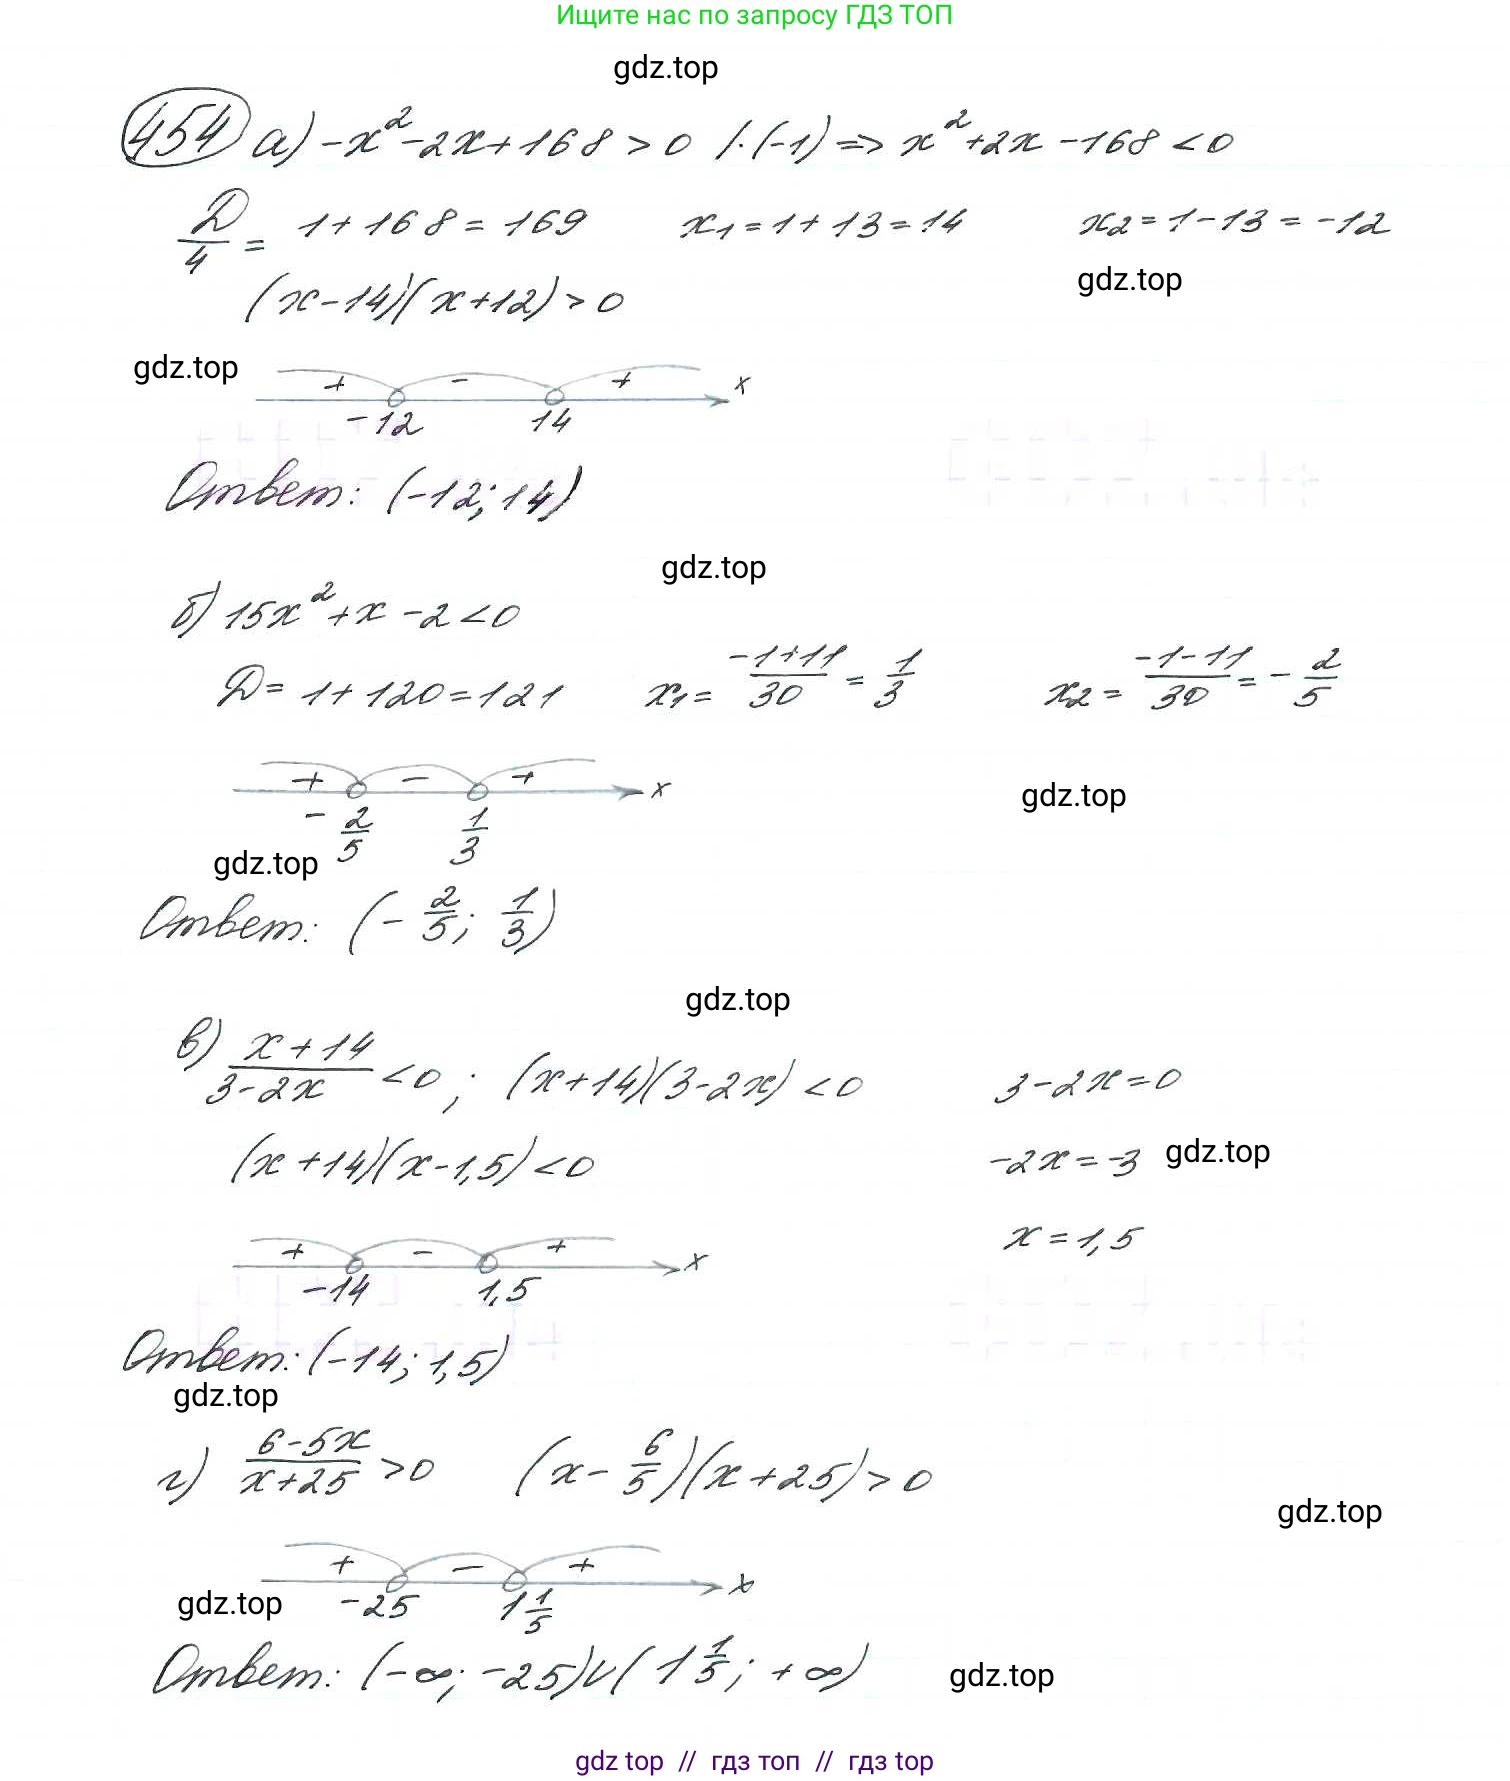 Ищите нас по запросу ГДЗ ТОП
gdz.top
454 а) -x² - 2x + 168 > 0 /·(-1) => x² + 2x - 168 < 0
D/4 = 1 + 168 = 169 x₁ = 1 + 13 = 14 x₂ = 1 - 13 = -12
gdz.top
(x - 14)(x + 12) > 0
gdz.top
+ - + x
-12 14
Ответ: (-12; 14)
gdz.top
б) 15x² + x - 2 < 0
D = 1 + 120 = 121 x₁ = (-1+11)/30 = 1/3 x₂ = (-1-11)/30 = -2/5
+ - + x
gdz.top
-2/5 1/3
gdz.top
Ответ: (-2/5; 1/3)
gdz.top
в) (x+14)/(3-2x) < 0; (x+14)(3-2x) < 0 3-2x=0
(x+14)(x-1,5) < 0 -2x=-3 gdz.top
x=1,5
+ - + x
-14 1,5
Ответ: (-14; 1,5)
gdz.top
г) (6-5x)/(x+25) > 0 (x - 6/5)(x+25) > 0
gdz.top
+ - + x
gdz.top -25 1 1/5
Ответ: (-∞; -25)∪(1 1/5; +∞) gdz.top
gdz top // гдз топ // gdz top